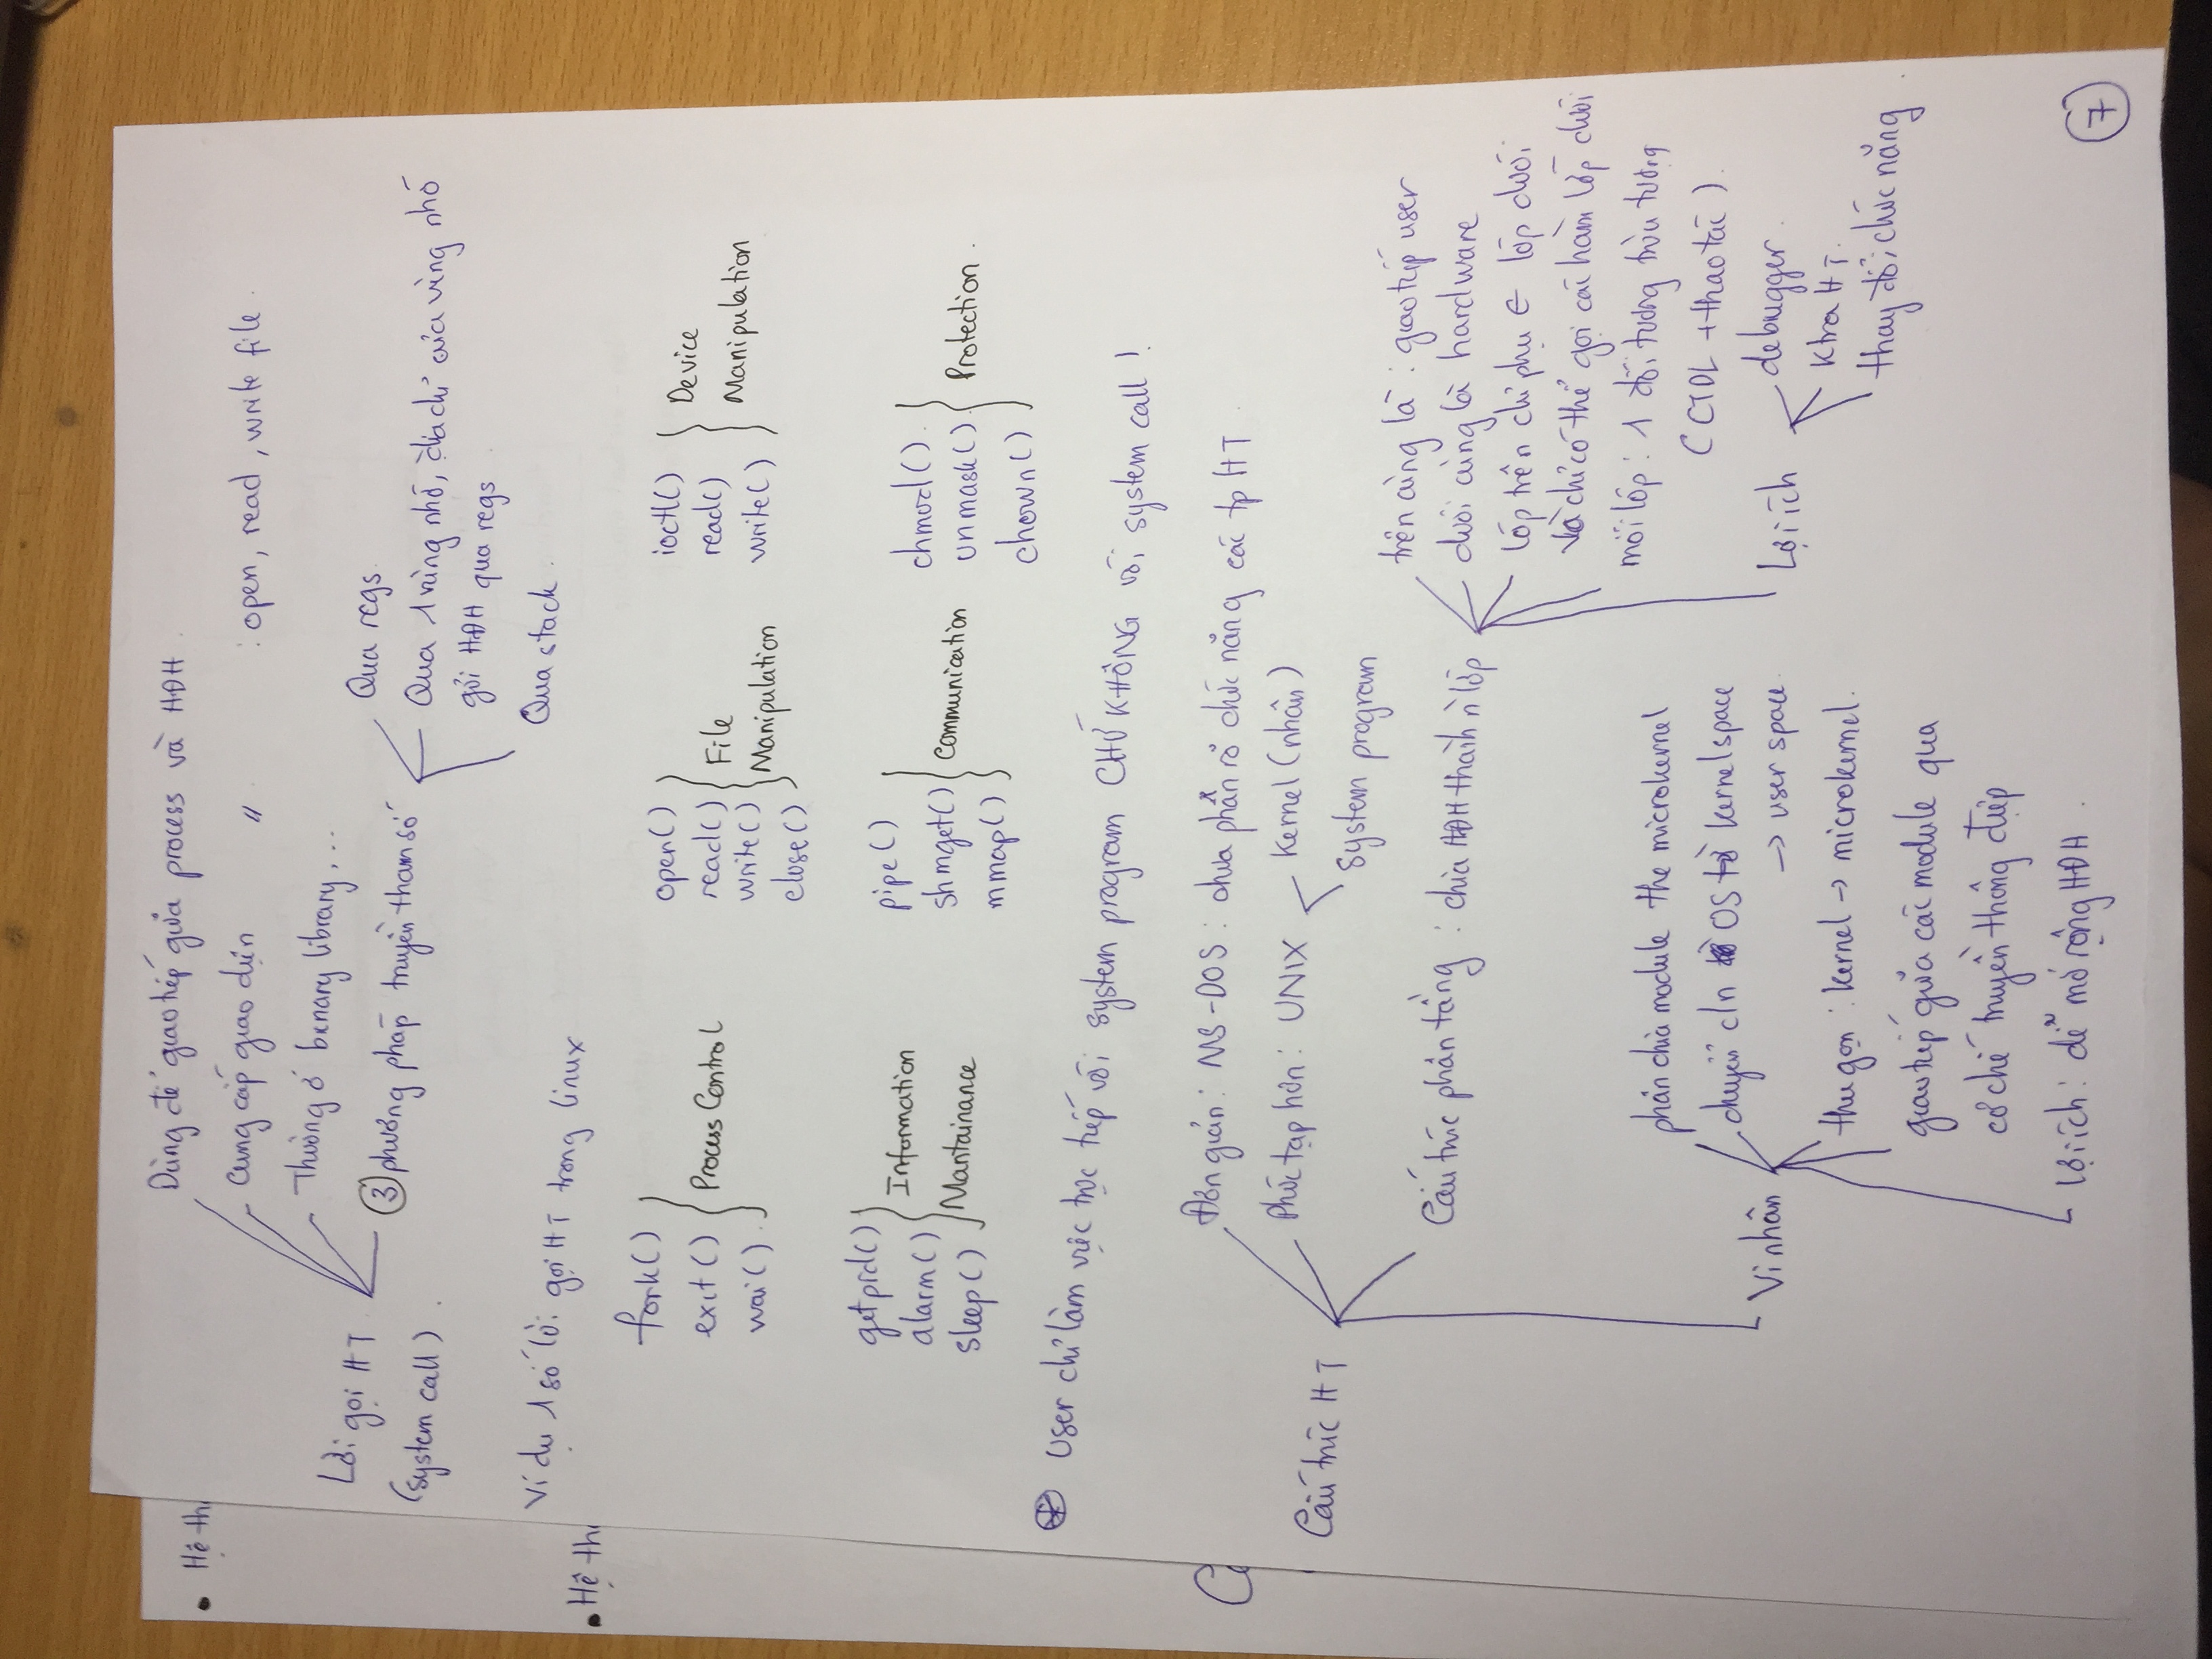 Dùng để giao tiếp giữa process và HĐH.
Cung cấp giao diện " : open, read, write file.
Thường ở binary library, ...
Lời gọi HT
(system call).
③ phương pháp truyền tham số
Qua regs.
Qua 1 vùng nhớ, địa chỉ của vùng nhớ
gửi HĐH qua regs.
Qua stack.
Ví dụ 1 số lời gọi HT trong linux
fork()
exit()
wai().
Process Control
open()
read()
write()
close()
File
Manipulation
ioctl()
read()
write()
Device
Manipulation
getpid()
alarm()
sleep()
Information
Mantainance
pipe()
shmget()
mmap()
Communication
chmod().
unmask()
chown()
Protection.
User chỉ làm việc trực tiếp với system program CHỨ KHÔNG với system call!
Cấu trúc HT
Đơn giản: MS-DOS: chưa phân rõ chức năng các tp HT.
Phức tạp hơn: UNIX
Kernel (nhân)
System program
Cấu trúc phân tầng: chia HĐH thành n` lớp
trên cùng là: giao tiếp user
dưới cùng là hardware
lớp trên chỉ phụ ∈ lớp dưới
và chỉ có thể gọi các hàm lớp dưới
mỗi lớp: 1 đối tượng trừu tượng
(CTDL + thao tác).
Lợi ích
debugger.
Ktra HT.
thay đổi chức năng.
Vi nhân
phân chia module the microkernel
chuyển c/n OS từ kernel space
-> user space.
thu gọn: kernel -> microkernel.
giao tiếp giữa các module qua
cơ chế truyền thông điệp
lợi ích: dễ mở rộng HĐH.
7
• Hệ th
• Hệ th
C